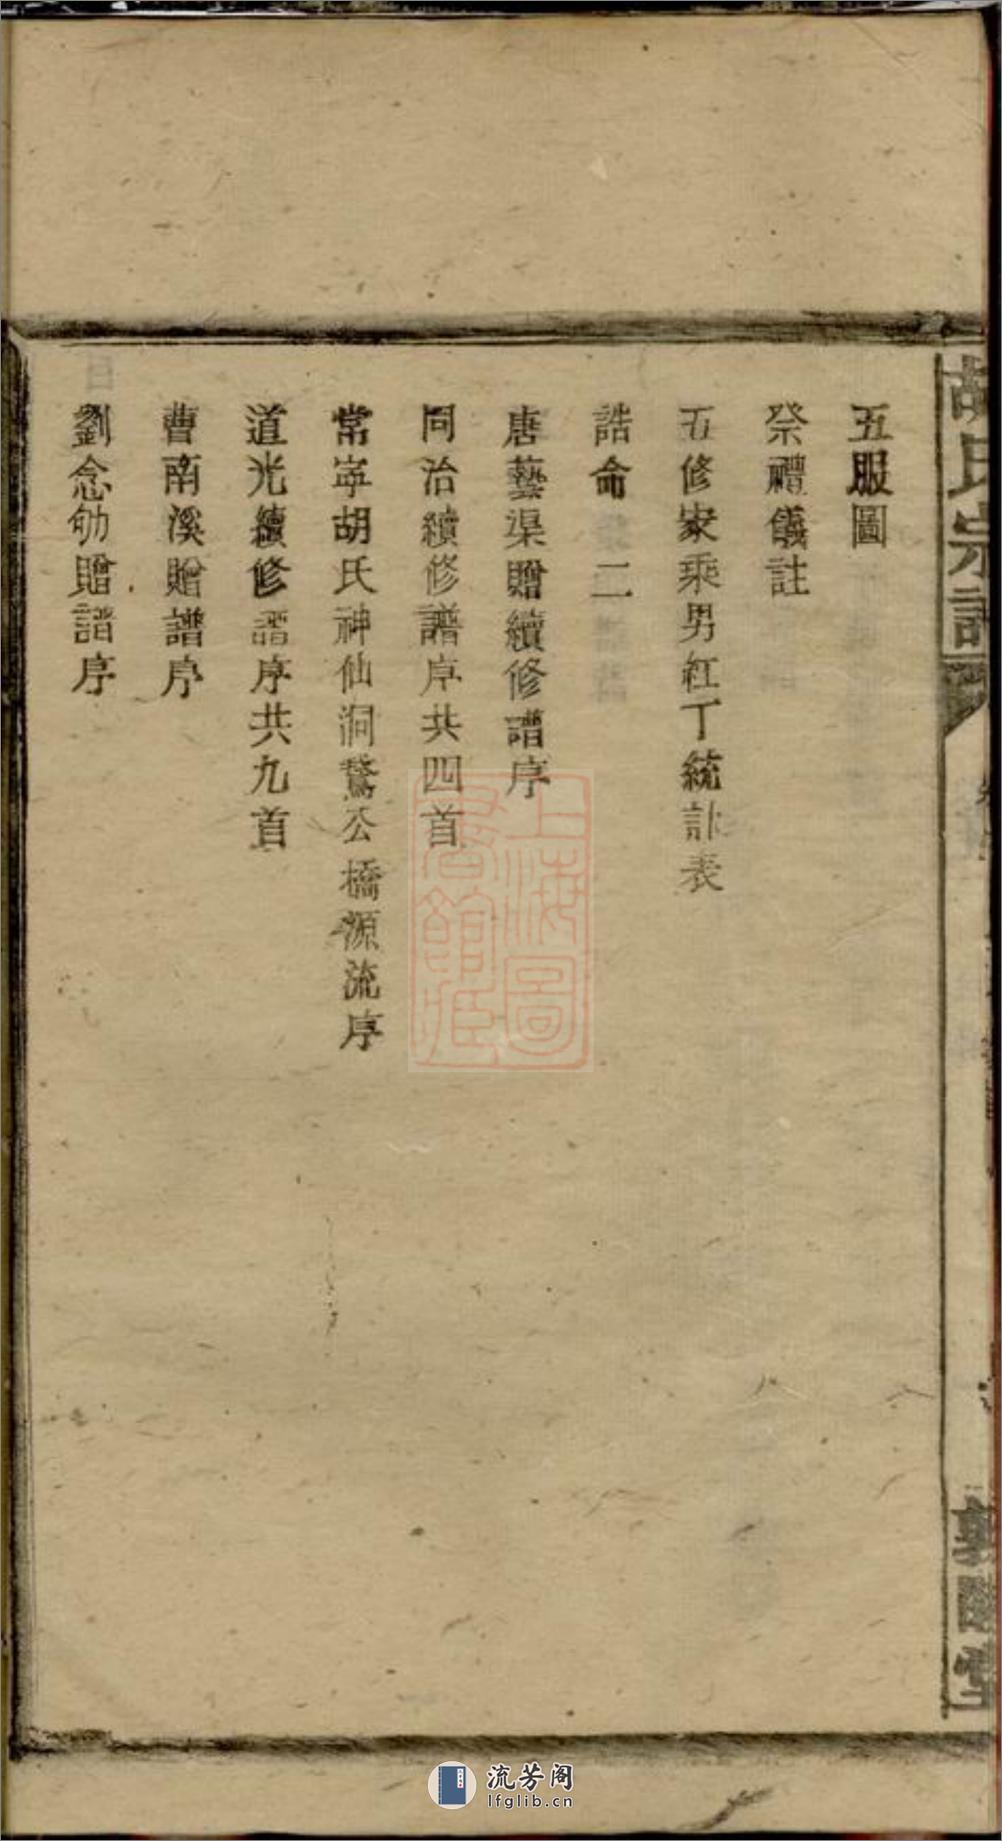 五服圖
祭禮儀註
五修家乘男紅丁統計表
誥命二
唐藝渠贈續修譜序
同治續修譜序共四首
常寧胡氏神仙洞鶩公橋源流序
道光續修譜序共九首
曹南溪贈譜序
劉念劬贈譜序
胡氏宗譜
上海圖
書館藏
流芳阁
lfglib.cn